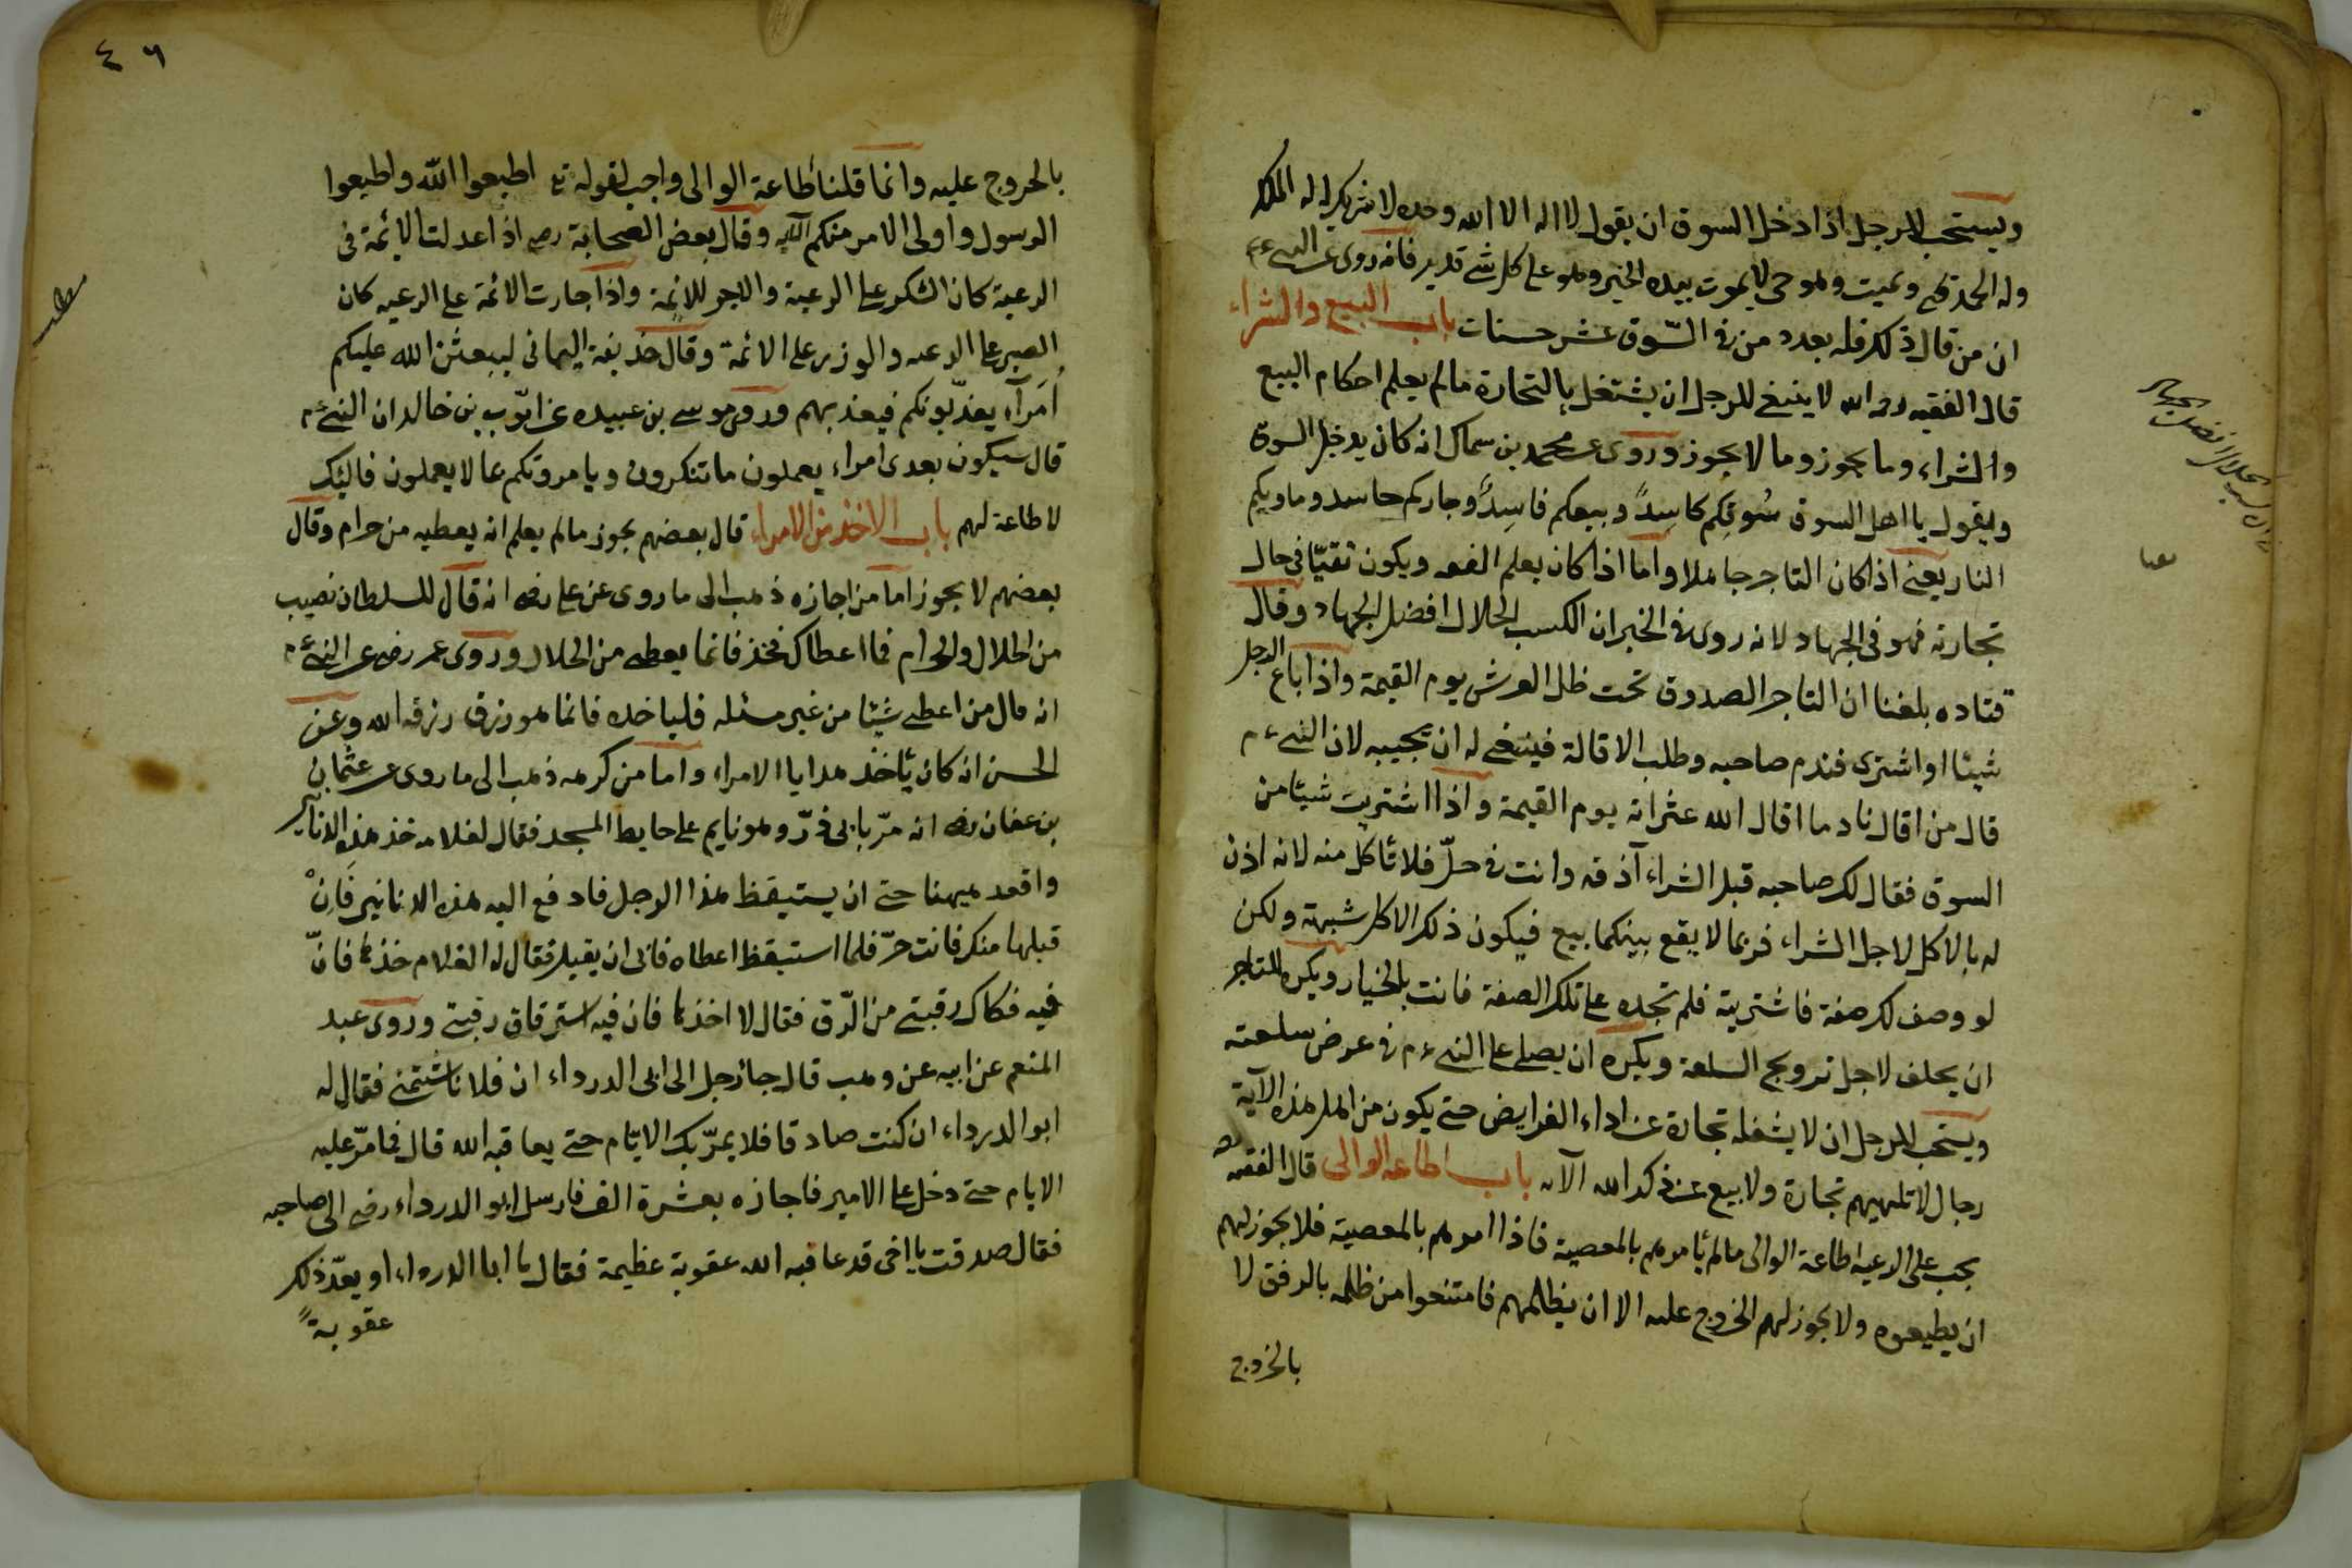 ويستحب للرجل اذا دخل السوق ان يقول لا اله الا الله وحده لا شريك له له الملك
وله الحمد يحيى ويميت وهو حى لا يموت بيده الخير وهو على كل شئ قدير فانه روى عن النبي ءم
ان من قال ذلك فله بعدد من فى السّوق عشر حسنات باب البيع والشراء
قال الفقيه رحمه الله لا ينبغى للرجل ان يشتغل بالتجارة مالم يعلم احكام البيع
والشراء وما يجوز وما لا يجوز وروى عن محمد بن سماك انه كان يدخل السوق
ويقول يا اهل السوق سُوقكم كاسِدٌ وبيعكم فاسِدٌ وجاركم حاسد وماويكم
النار يعنى اذا كان التاجر جاهلا واما اذا كان يعلم الفقه ويكون تقيّا فى حال
تجارته فهو فى الجهاد لانه روى فى الخبر ان الكسب الحلال افضل الجهاد وقال
قتاده بلغنا ان التاجر الصدوق تحت ظل العرش يوم القيمة واذا باع الرجل
شيئا او اشترى فندم صاحبه وطلب الاقالة فينبغى له ان يجيبه لان النبي ءم
قال من اقال نادما اقال الله عثراته يوم القيمة واذا اشتريت شيئا من
السوق فقال لك صاحبه قبل الشراء آذقه وانت فى حلّ فلا تأكل منه لانه اذن
له بالاكل لاجل الشراء فربما لا يقع بينكما بيع فيكون ذلك الاكل شبهة ولكن
لو وصف لك صفة فاشتريته فلم تجده على تلك الصفة فانت بالخيار ويكره للتاجر
ان يحلف لاجل ترويج السلعة ويكره ان يصلى على النبي ءم فى عرض سلعته
ويستحب للرجل ان لا يشغله تجارة عن اداء الفرايض حتى يكون من اهل هذه الآية
رجال لا تلهيهم تجارة ولا بيع عن ذكر الله الآيه باب اطاعة الوالى قال الفقيه
يجب على الرعية اطاعة الوالى مالم يأمرهم بالمعصية فاذا امرهم بالمعصية فلا يجوز لهم
ان يطيعوه ولا يجوز لهم الخروج عليه الا ان يظلمهم فامتنعوا من ظلمه بالرفق لا
بالخروج
٤٦
بالخروج عليه وانما قلنا طاعة الوالى واجب لقوله تع اطيعوا الله واطيعوا
الرسول واولى الامر منكم الآية وقال بعض الصحابة رض اذا عدلت الائمة فى
الرعية كان الشكر على الرعية والاجر للائمة واذا جارت الائمة على الرعيه كان
الصبر على الرعيه والوزر على الائمة وقال حذيفة اليمانى ليبعثن الله عليكم
اُمَرآء يعذّبونكم فيعذبهم وروى موسى بن عبيده عن ايّوب بن خالد ان النبي ءم
قال سيكون بعدى امراء يعملون ما تنكرون ويامرونكم بما لا يعملون فاليك
لا طاعة لهم باب الاخذ من الامراء قال بعضهم يجوز مالم يعلم انه يعطيه من حرام وقال
بعضهم لا يجوز اما من اجازه ذهب الى ما روى عن على رضه انه قال للسلطان نصيب
من الحلال والحرام فما اعطاك فخذ فانما يعطى من الحلال وروى عمر رض عن النبي ءم
انه قال من اعطى شيئا من غير مسئله فلياخده فانما هو رزق رزقه الله وعن
الحسن انه كان يأخذ هدايا الامراء واما من كرهه ذهب الى ما روى عن عثمان
بن عفان رضه انه مرّ بابى ذرّ وهو نايم على حايط المسجد فقال لغلامه خذ هذه الدنانير
واقعد هيهنا حتى ان يستيقظ هذا الرجل فادفع اليه هذه الدنانير فَانْ
قبلها منك فانت حرّ فلما استيقظ اعطاه فابى ان يقبل فقال له الغلام خذها فانّ
فيه فكاك رقبتى من الرّق فقال لا اخذها فان فيه استرقاق رقبتى وروى عبد
المنعم عن ابيه عن وهب قال جاء رجل الى ابى الدرداء ان فلانا شتمنى فقال له
ابو الدرداء ان كنت صادقا فلا يمرّ بك الايّام حتى يعاقبه الله قال فما مرّ عليه
الايام حتى دخل على الامير فاجازه بعشرة الف فارسل ابو الدرداء رض الى صاحبه
فقال صدقت يا اخى قد عاقبه الله عقوبة عظيمة فقال يا ابا الدرداء او يعدّ ذلك
عقوبةً